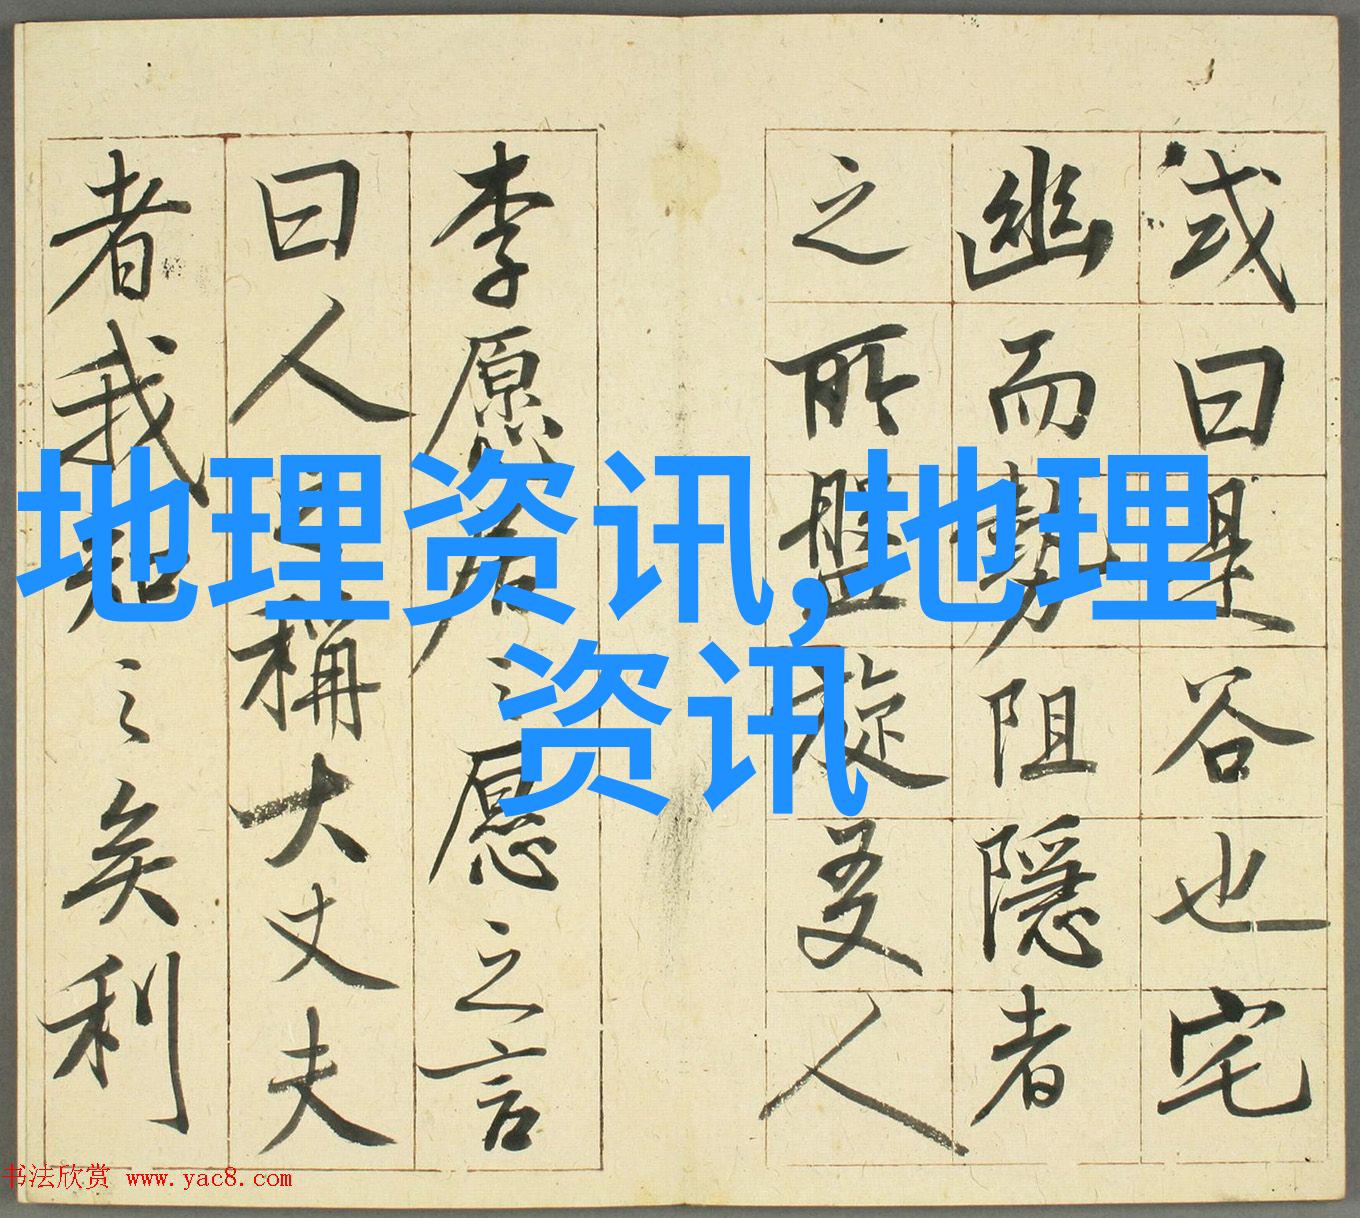 地理资讯,地理
资讯
或曰是谷也宅
幽而勢阻隱者
之所盤旋友人
李愿居之愿之言
曰人之稱大丈夫
者我知之矣利
书法欣赏 www.yac8.com